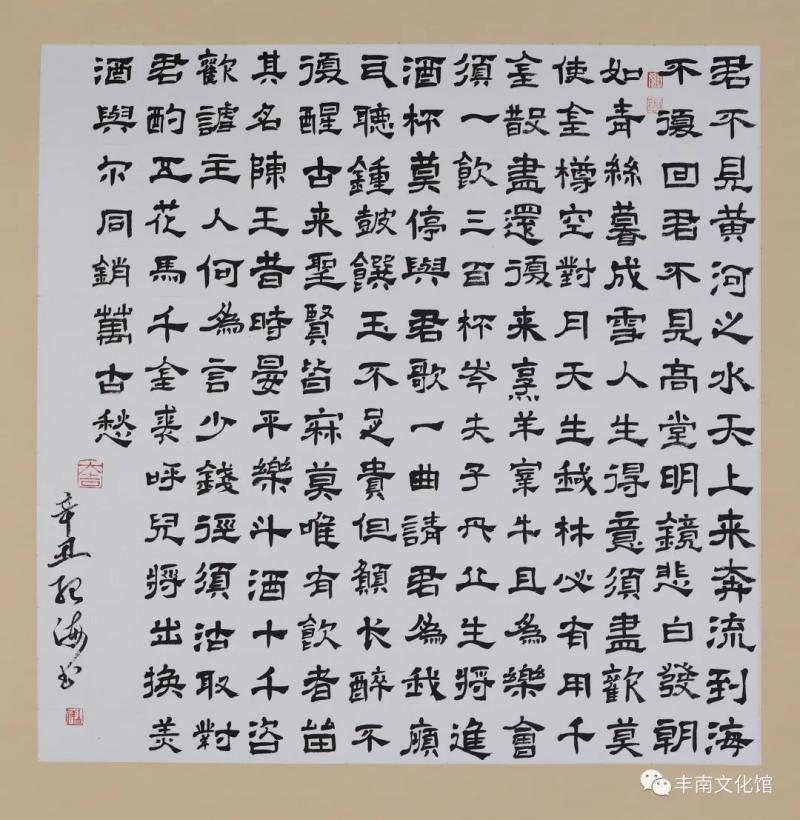 君不見黄河之水天上来奔流到海
不復回君不見高堂明鏡悲白發朝
如青絲暮成雪人生得意須盡歡莫
使金樽空對月天生我材必有用千
金散盡還復来烹羊宰牛且為樂會
須一飲三百杯岑夫子丹丘生將進
酒杯莫停與君歌一曲請君為我傾
耳聽鍾鼓饌玉不足貴但願長醉不
復醒古来聖賢皆寂莫唯有飲者留
其名陳王昔時晏平樂斗酒十千咨
歡謔主人何為言少錢徑須沽取對
君酌五花馬千金裘呼兒將出換美
酒與尔同銷萬古愁
大吉
辛丑海书
丰南文化馆